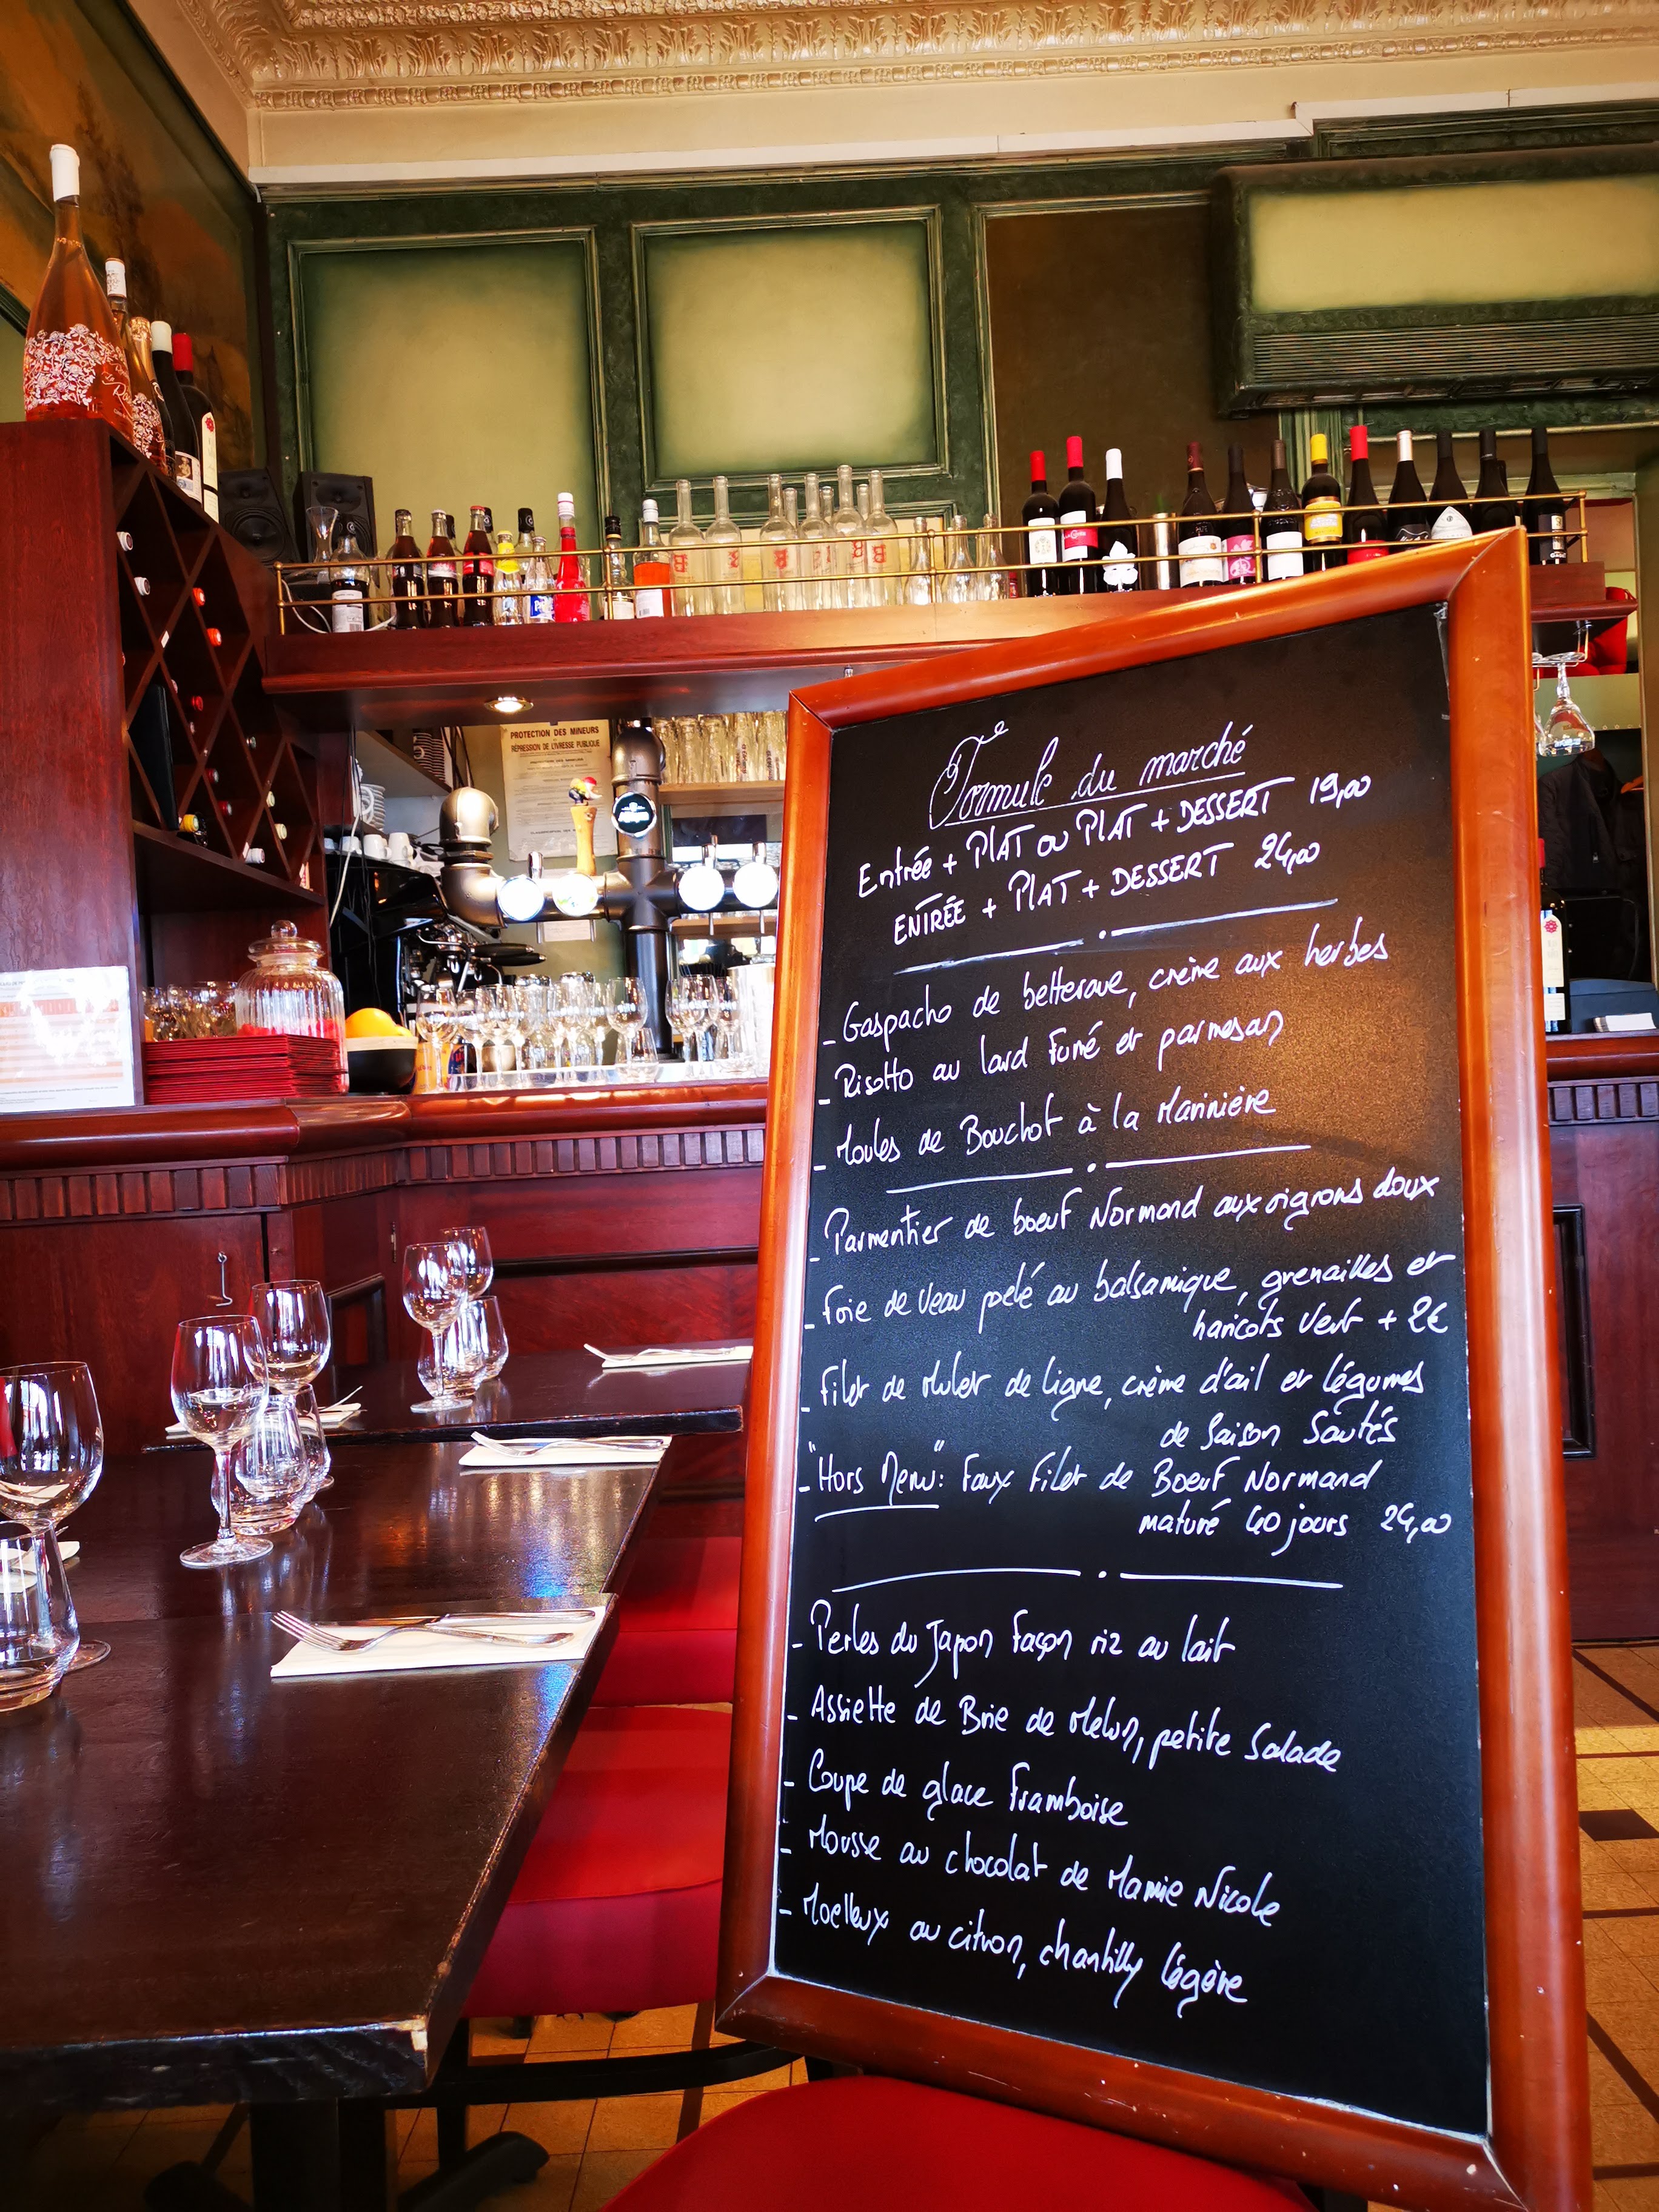 PROTECTION DES MINEURS
RÉPRESSION DE L'IVRESSE PUBLIQUE
Formule du marché
Entrée + PLAT OU PLAT + DESSERT 19,00
ENTRÉE + PLAT + DESSERT 24,00
- Gaspacho de betterave, crème aux herbes
- Risotto au lard fumé et parmesan
- Moules de Bouchot à la Marinière
- Parmentier de boeuf Normand aux oignons doux
- Foie de veau pelé au balsamique, grenailles et
haricots vert + 2€
- Filet de Mulet de ligne, crème d'ail et légumes
de saison sautés
- "Hors Menu": Faux Filet de Boeuf Normand
maturé 40 jours 24,00
- Perles du Japon façon riz au lait
- Assiette de Brie de Melun, petite salade
- Coupe de glace Framboise
- Mousse au chocolat de Mamie Nicole
- Moelleux au citron, chantilly légère